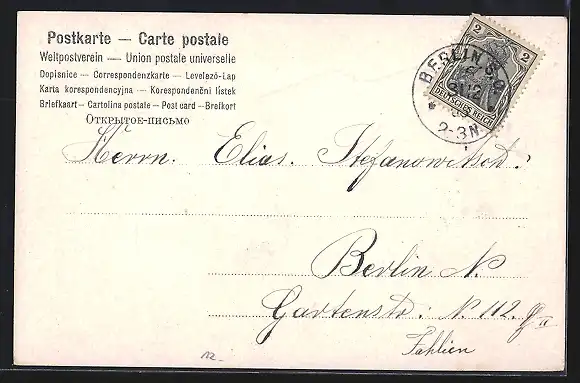 Postkarte — Carte postale
Weltpostverein — Union postale universelle
Dopisnice — Correspondenzkarte — Levelező-Lap
Karta korespondencyjna — Korespondenční lístek
Briefkaart — Cartolina postale — Post card — Brefkort
Открытое-письмо
2 2
BERLIN
DEUTSCHES REICH
2-3N.
Herrn. Elias. Stefanowitsch.
Berlin N.
Gartenstr: N 112.
Fahlien
12.